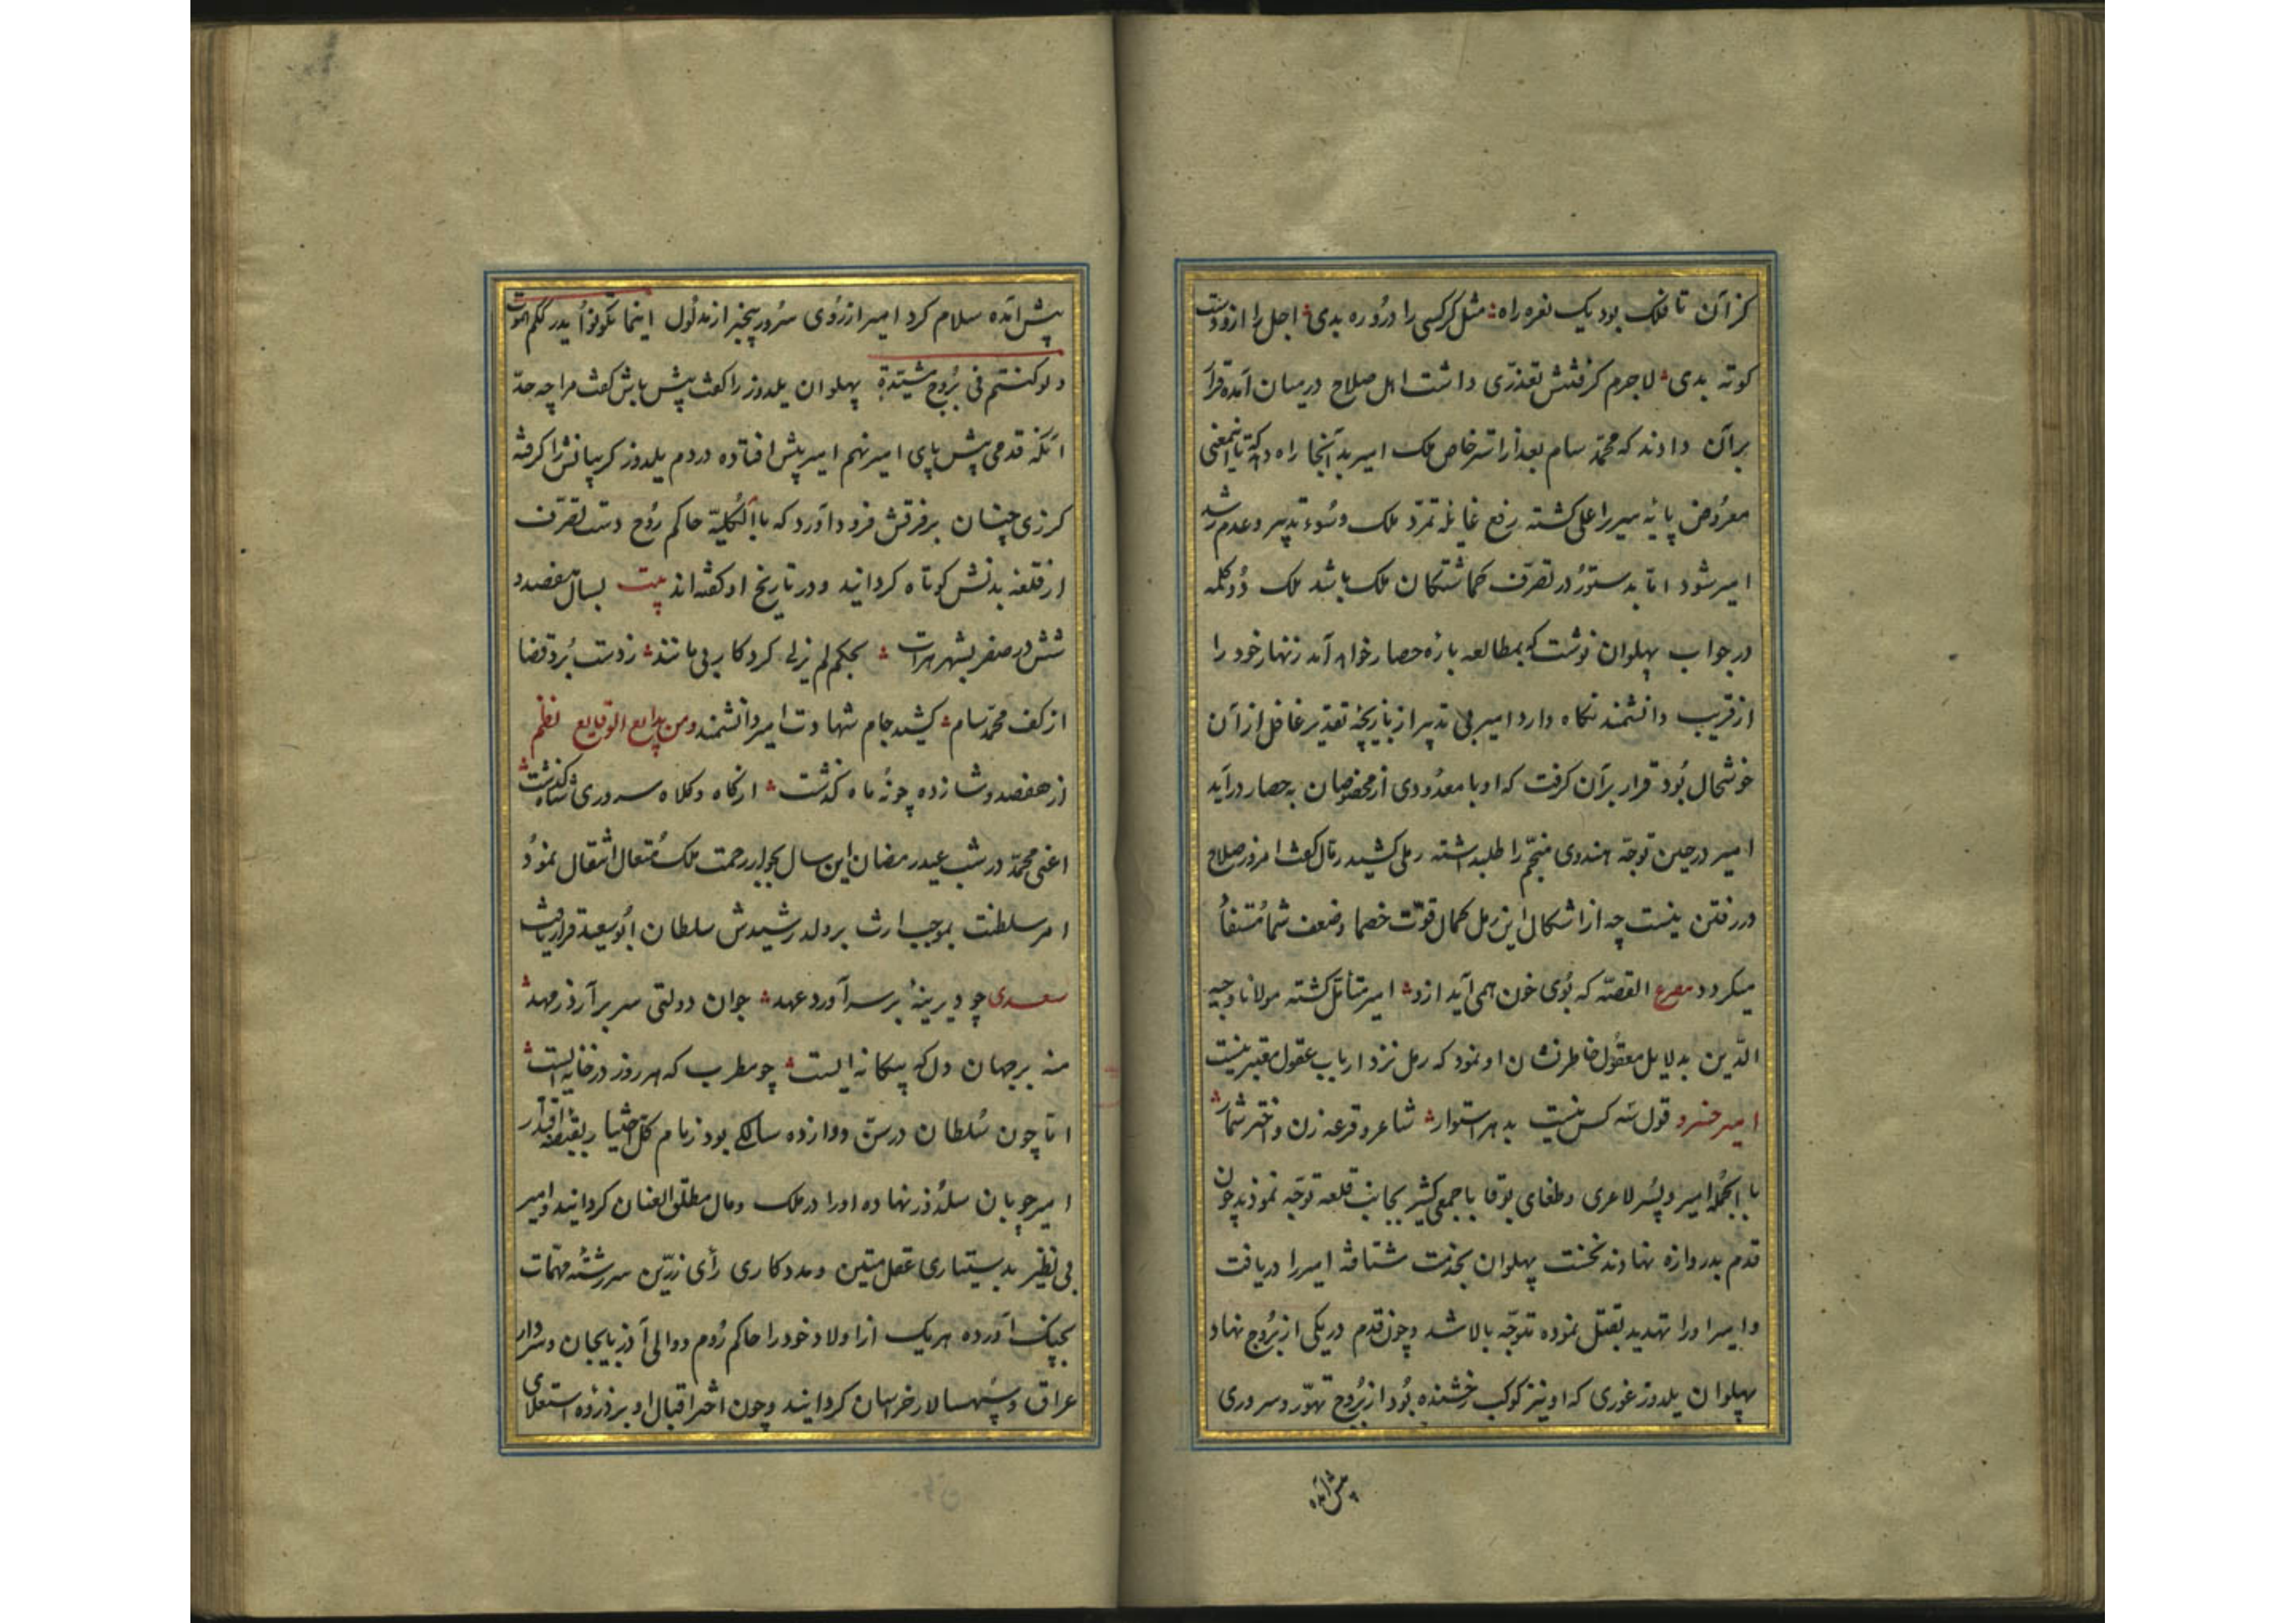 کز آن تا فلک بود یک نعره راه مثل کرکسی را در و ره بدی اجل را ازو دست
کوته بدی لاجرم گرفتنش تعذری داشت اهل صلاح در میان آمده قرار
بر آن دادند که محمد سام بعد از استرخاص ملک امیر بدآنجا راه دهد که تا این معنی
معروض پایه سریر اعلی گشته رفع غایله تمرد ملک وسوء تدبیر و عدم رشد
امیر شود اما بدستور در تصرف گماشتگان ملک باشد ملک دو کلمه
در جواب پهلوان نوشت که بمطالعه باره حصار خواهد آمد زنهار خود را
از فریب دانشمند نگاه دارد امیر بی تدبیر از بازیچه تقدیر غافل از آن
خوشحال بود قرار بر آن گرفت که او با معدودی از مخصوصان به حصار درآید
امیر در حین توجه هندوی منجم را طلب داشته رملی کشید رمال گفت امروز صلاح
در رفتن نیست چه از اشکال این رمل کمال قوت خصما وضعف شما مستفاد
میکردد مصرع القصه که بوی خون همی آید ازو امیر متأمل گشته مولانا وجیه
الدین بدلایل معقول خاطر نشان او نمود که رمل نزد ارباب عقول معتبر نیست
امیر خسرو قول سه کس نیست بدهر استوار شاعر و قرعه زن و اختر شمار
بالجمله امیر و پسر لاغری وطغای بوقا با جمعی کثیر بجانب قلعه توجه نمودند چون
قدم بدروازه نهادند نخست پهلوان بخدمت شتافته امیر را دریافت
وامیر او را تهدید بقتل نموده متوجه بالا شد وچون قدم در یکی از بروج نهاد
پهلوان یلدوز غوری که او نیز کوکب رخشنده بود از بروج تهور و سروری
پیش آمده
پیش آمده سلام کرد امیر از روی سرور بیخبر از مدلول اینما تکونوا یدرککم الموت
ولو کنتم فی بروج مشیدة پهلوان یلدوز را گفت پیش باش گفت مرا چه حد
آنکه قدمی پیش پای امیر نهم امیر پیش افتاده در دم یلدوز گریبانش را گرفته
گرزی چنان بر فرقش فرود آورد که بالکلیه حاکم روح دست تصرف
از قلعه بدنش کوتاه گردانید و در تاریخ او گفته‌اند بیت بسال هفصد و
شش در صفر بشهر هرات بحکم لم یزلی کردکار بی مانند ز دست برد قضا
از کف محمد سام کشید جام شهادت امیر دانشمند ومن بدایع الوقایع نظم
از هفصد و شانزده چو نه ماه گذشت از گاه و کلاه سروری شاه گذشت
اعنی محمد در شب عید رمضان این سال بجوار رحمت ملک متعال انتقال نمود
امر سلطنت بموجب ارث بر ولد رشیدش سلطان ابو سعید قرار یافت
سعدی چو دیرینهٔ برسرآورد عهد جوان دولتی سر برآرد ز مهد
منه بر جهان دل که بیگانه ایست چو مطرب که هر روز در خانه ایست
اما چون سلطان در سن دوازده سالگی بود زمام کل اختیار بقبضه اقتدار
امیر چوپان سلدوز نهاده او را در ملک ومال مطلق العنان گردانید وامیر
بی نظیر بدستیاری عقل متین ومددکاری رأی زرین سررشته مهمات
بچنگ آورده هر یک از اولاد خود را حاکم روم ووالی آذربایجان وسردار
عراق وسپهسالار خراسان گردانید وچون اختر اقبال او بر ذروه استعلای